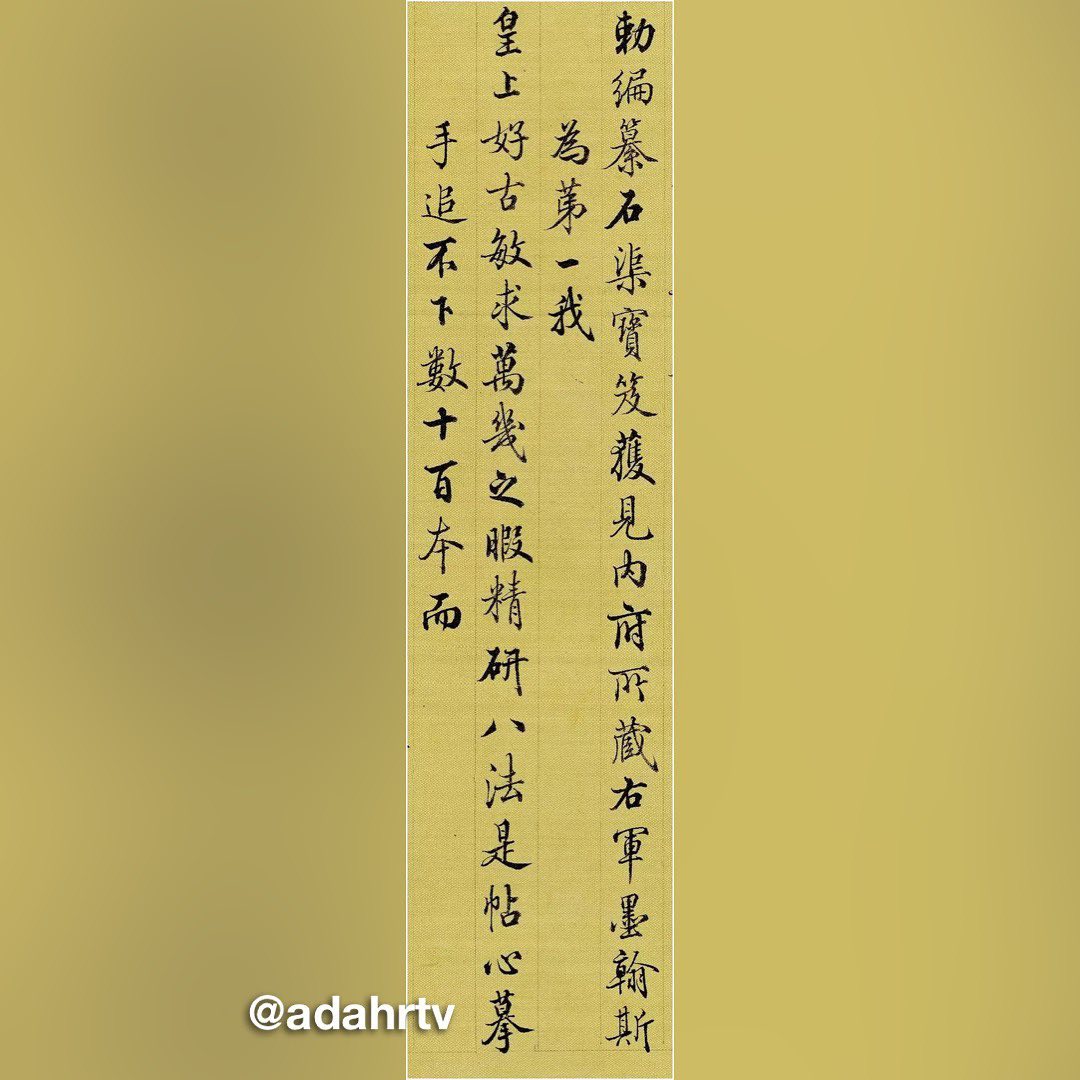 勅編纂石渠寳笈獲見内府所蔵右軍墨翰斯
為苐一我
皇上好古敏求萬幾之暇精研八法是帖心摹
手追不下數十百本而
@adahrtv